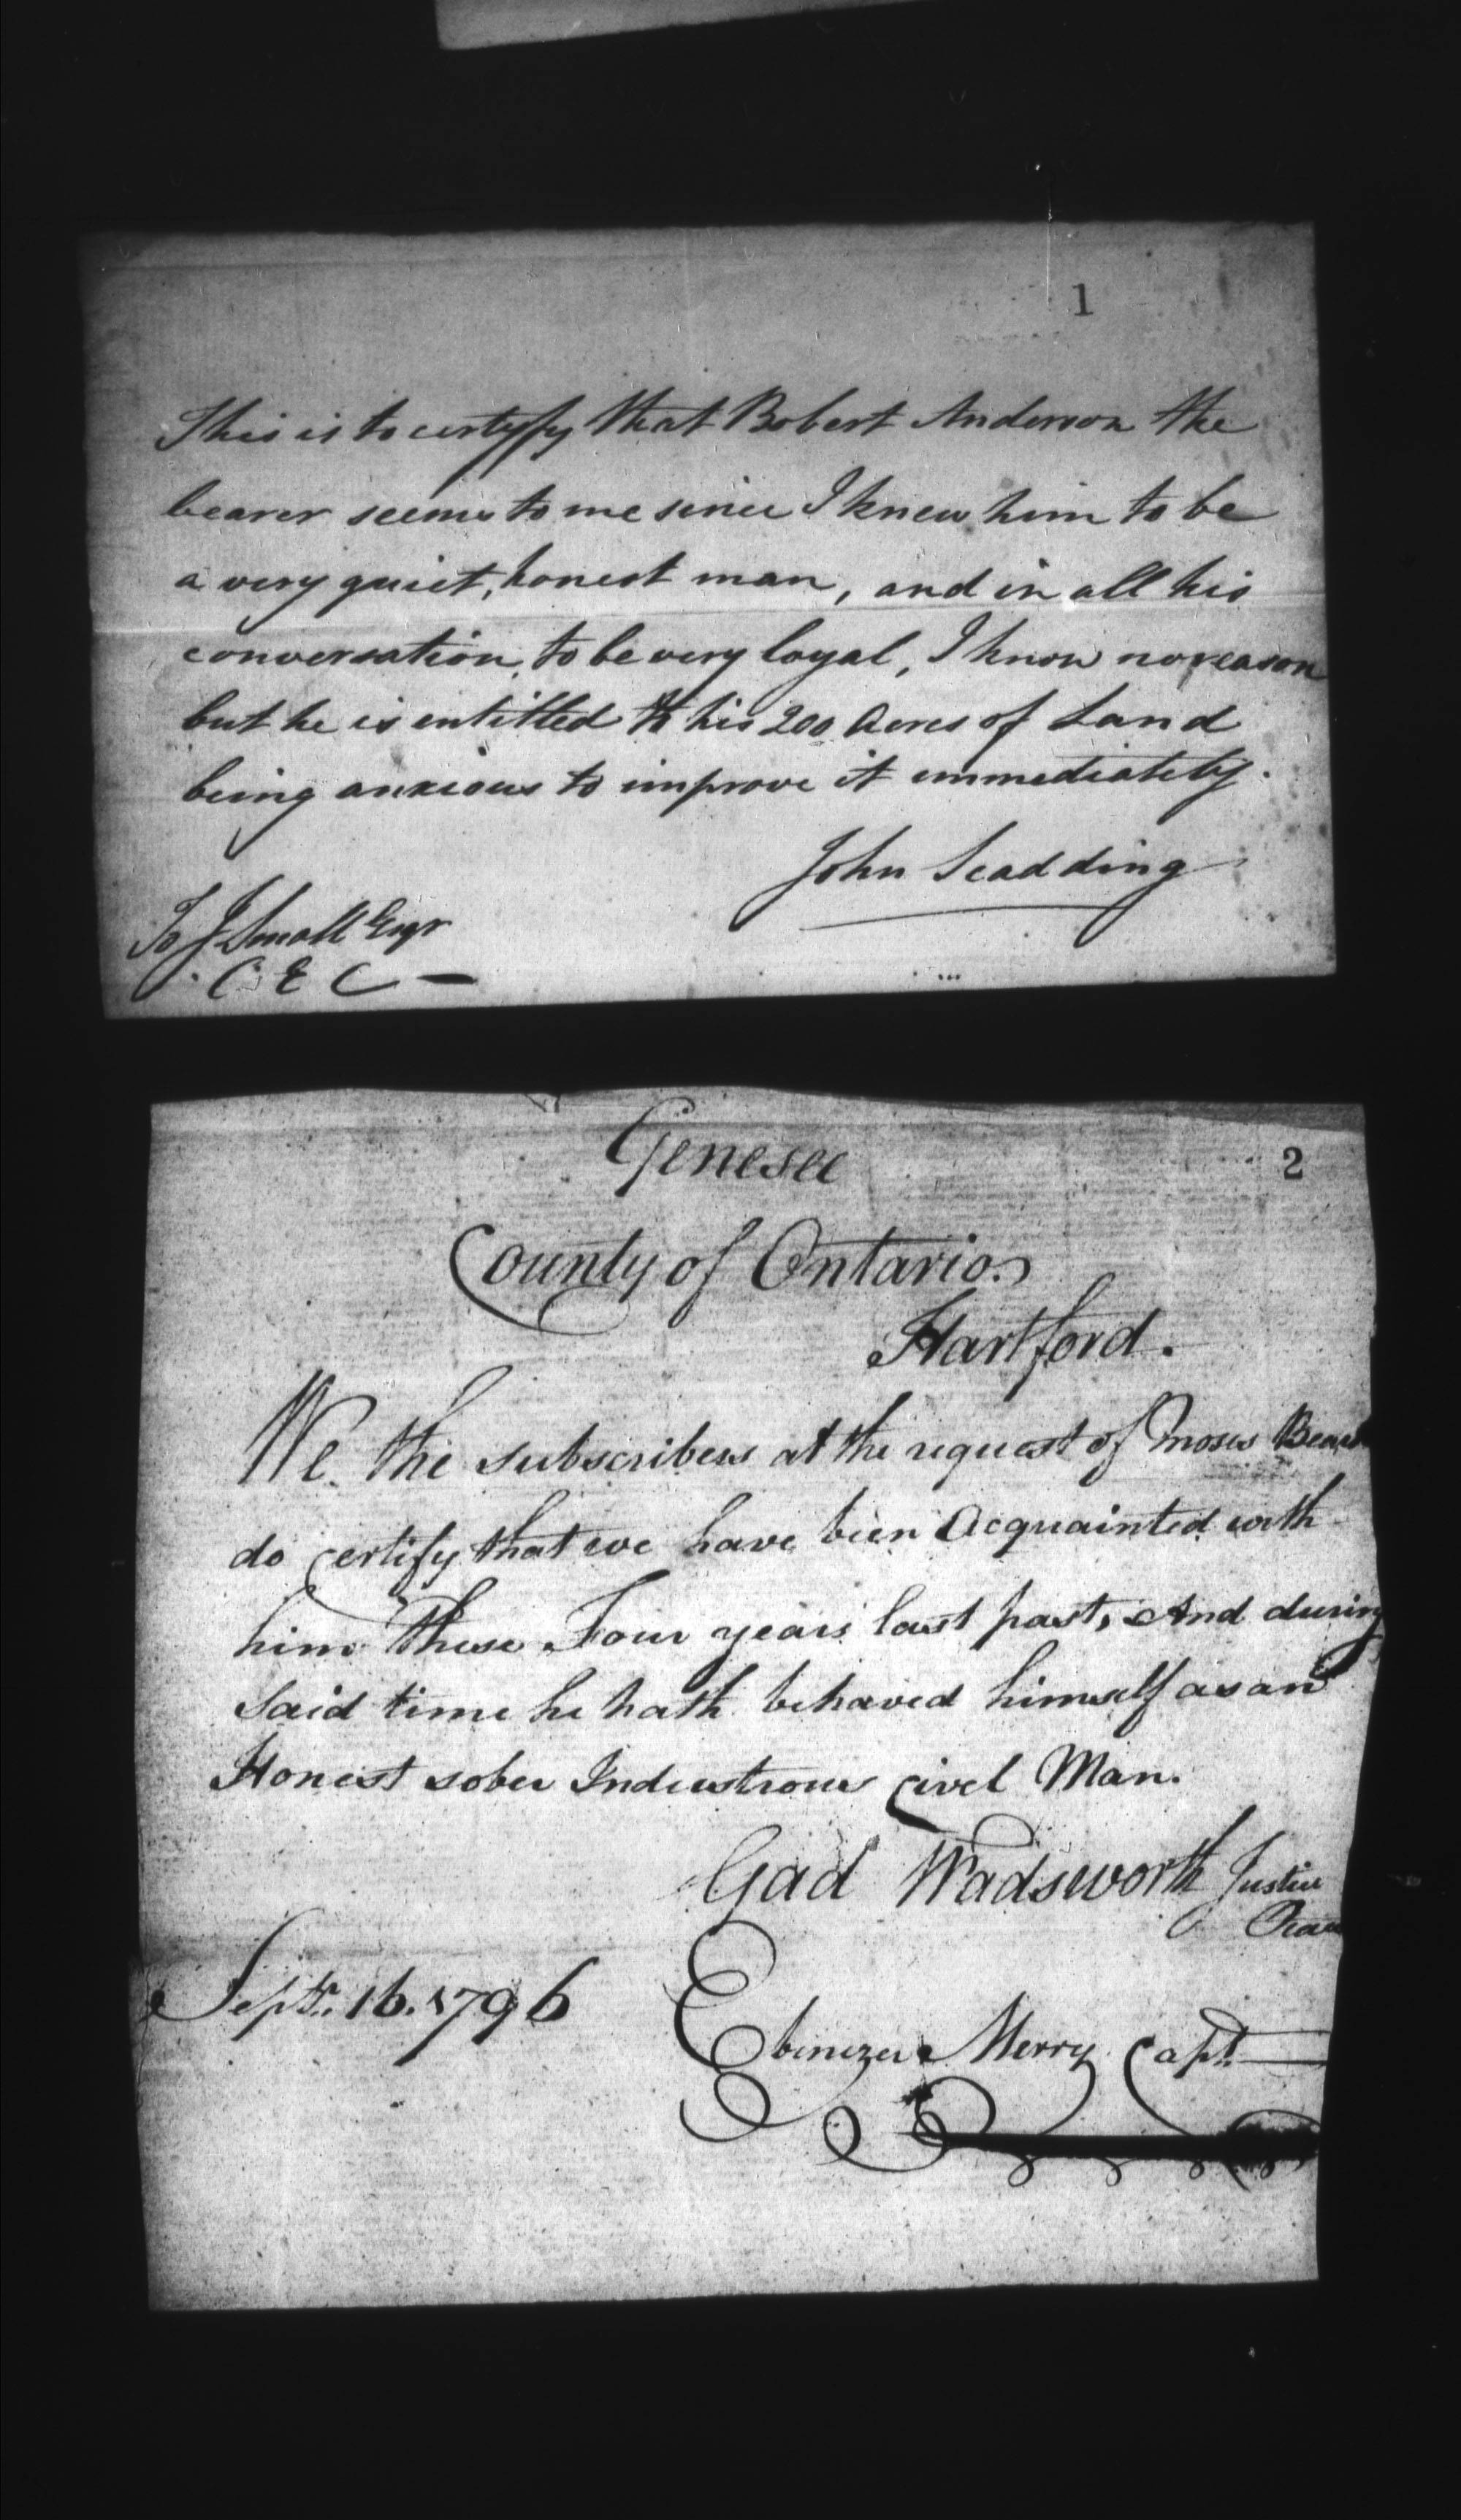 1
This is to certyfy that Robert Anderson the
bearer seems to me since I knew him to be
a very quiet, honest man, and in all his
conversation, to be very loyal, I know no reason
but he is entitled to his 200 Acres of Land
being anxious to improve it immediately.
John Scadding
To J Small Esqr
C E C —
2
Genesee
County of Ontario.
Hartford.
We the subscribers at the request of Moses
do certify that we have been Acquainted with
him these Four years last past, And during
said time he hath behaved himself as an
Honest sober Industrous civel Man.
Gad Wadsworth Justice
Sept. 16. 1796
Ebenezer Merry Capt.